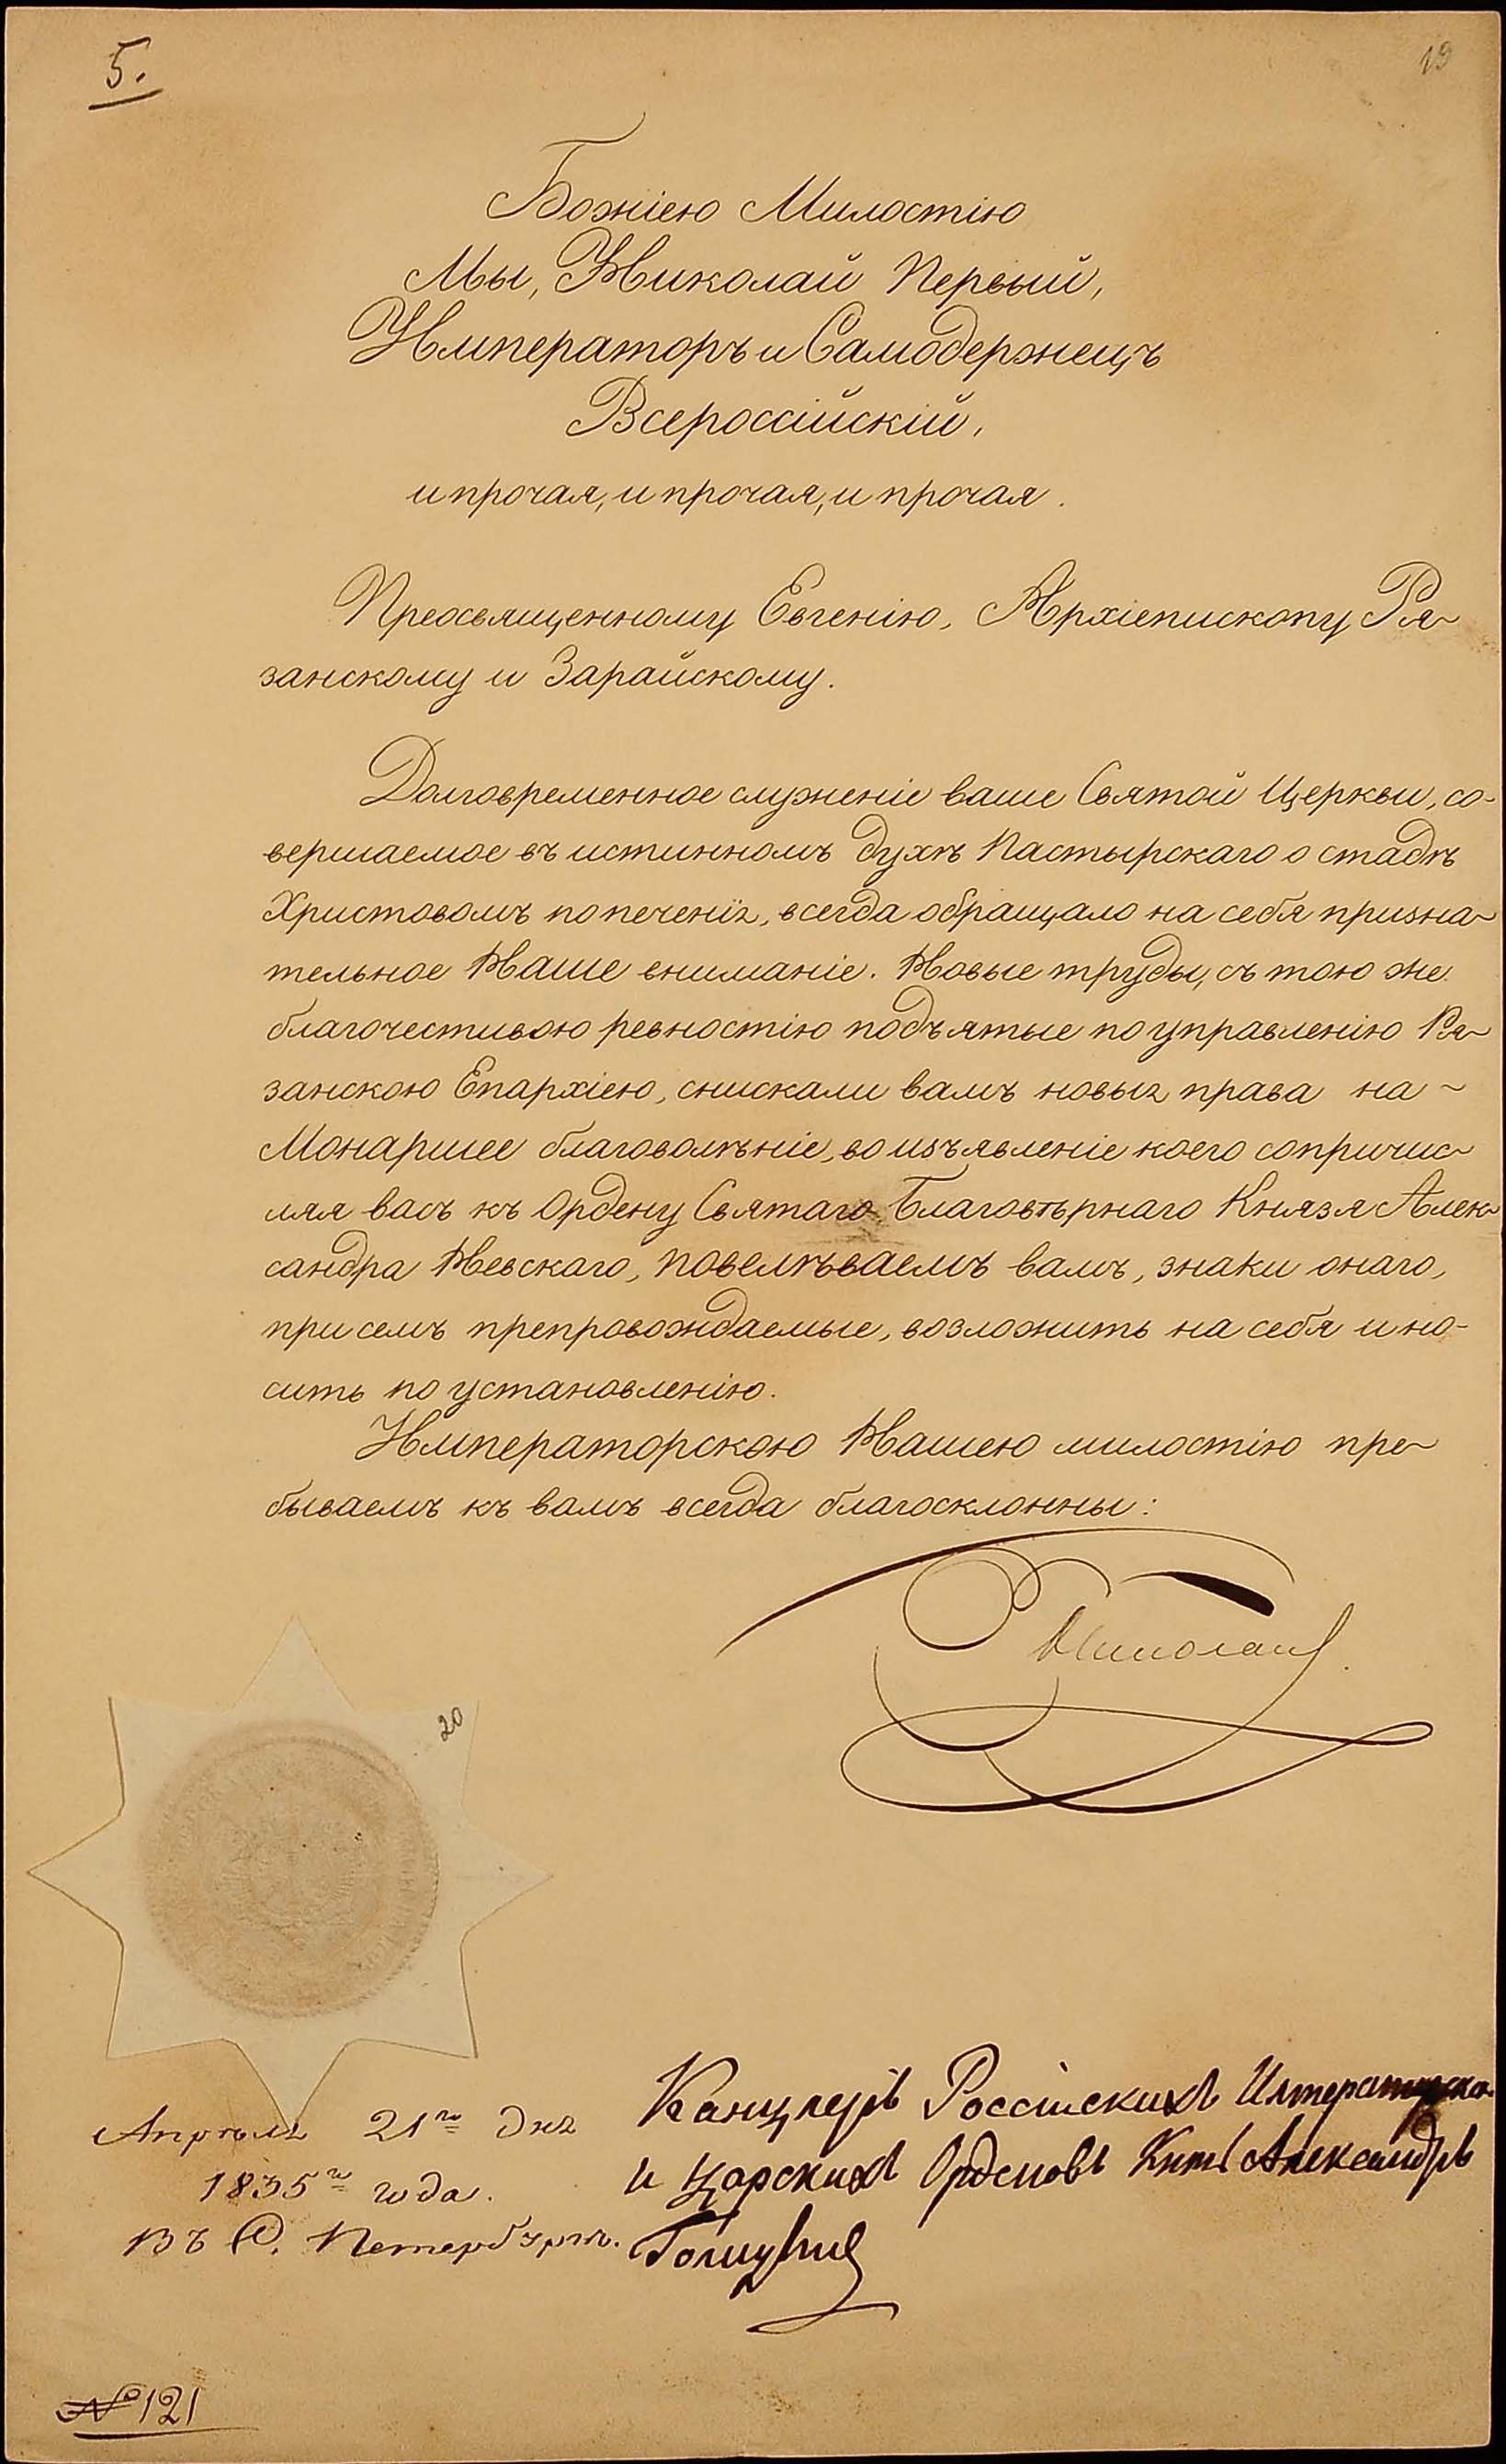 5.
19
Божіею Милостію
Мы, Николай Первый,
Императоръ и Самодержецъ
Всероссійскій,
и прочая, и прочая, и прочая.
Преосвященному Евгенію, Архіепископу Ря-
занскому и Зарайскому.
Долговременное служеніе ваше Святой Церкви, со-
вершаемое въ истинномъ духѣ Пастырскаго о стадѣ
Христовомъ попеченія, всегда обращало на себя призна-
тельное Наше вниманіе. Новые труды, съ тою же
благочестивою ревностію подъятые по управленію Ря-
занскою Епархіею, снискали вамъ новыя права на
Монаршее благоволѣніе, во изъявленіе коего сопричис-
ляя васъ къ Ордену Святаго Благовѣрнаго Князя Алек-
сандра Невскаго, повелѣваемъ вамъ, знаки онаго,
при семъ препровождаемые, возложить на себя и но-
сить по установленію.
Императорскою Нашею милостію пре-
бываемъ къ вамъ всегда благосклонны:
Николай.
20
Апрѣля 21го дня
1835го года.
Въ С. Петербургѣ.
Канцлеръ Россійскихъ Императорско.
и Царскихъ Орденовъ Князь Александръ
Голицынъ
№ 121